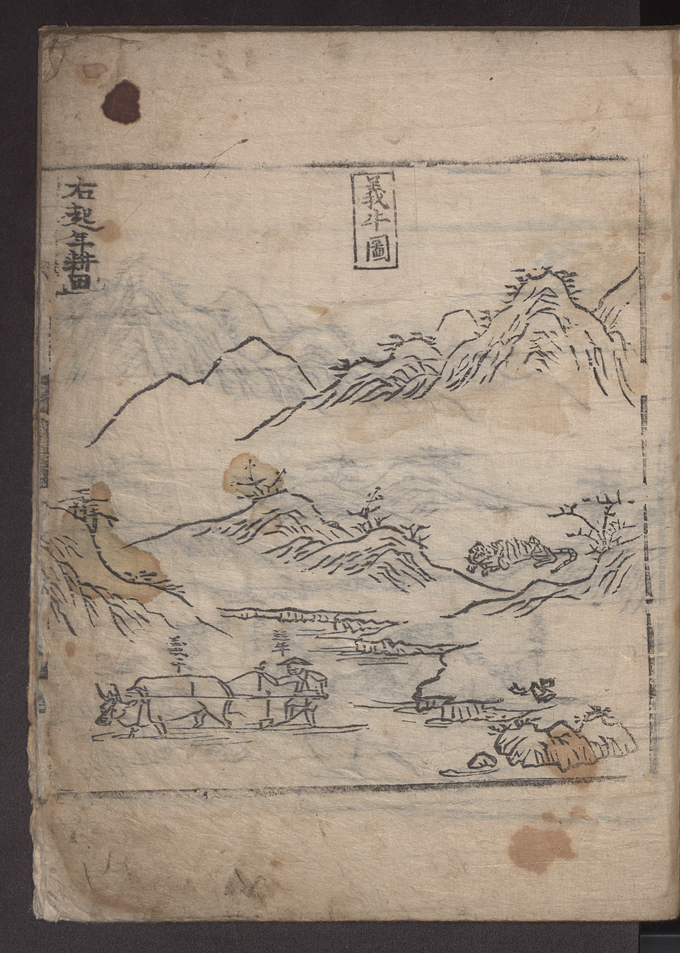 義牛圖
右起年耕田
起年
義牛